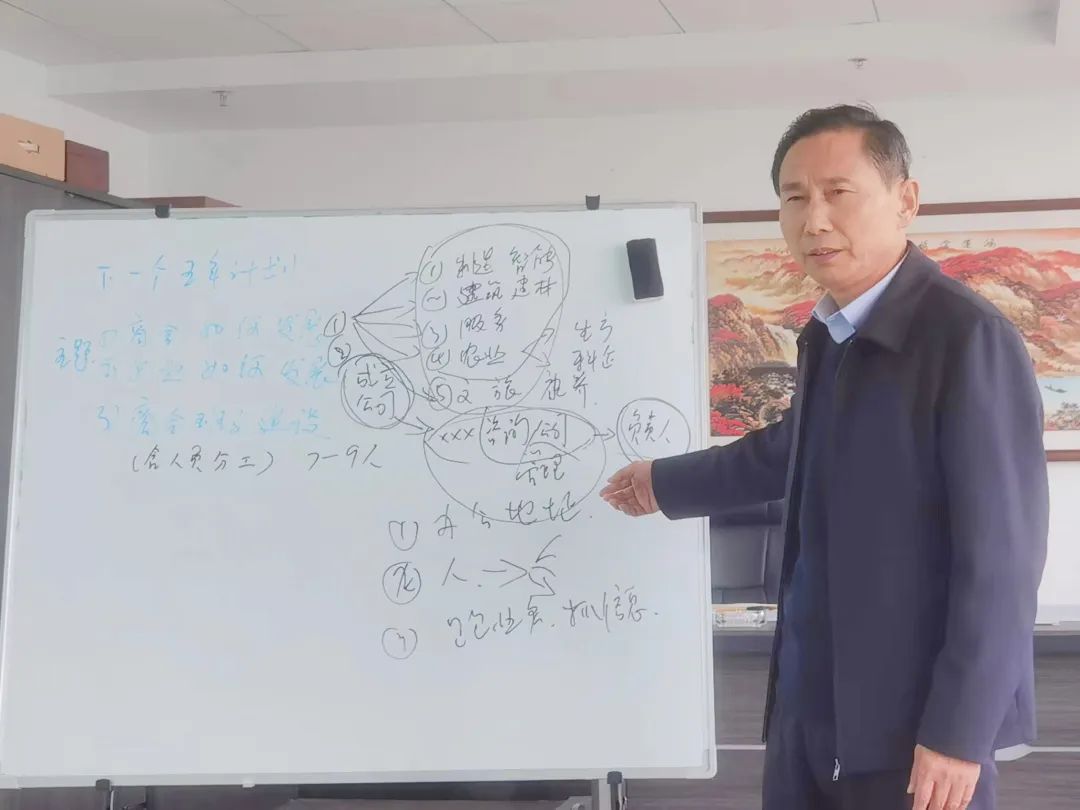 下一个五年计划
主题
1) 商会如何发展
2) 企业如何发展
3) 商会班子建设
(含人员分工) 7—9人
①
②
成立公司
① 制造 智能
② 建筑 建材
③ 服务
④ 农业
⑤ 文旅 康养
生产
科企
xxx 咨询 公司
管理
负责人
① 办公地址.
② 人.
③ 定任务. 抓信息.